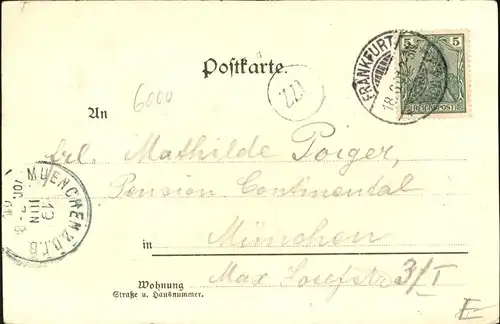 Postkarte.
FRANKFURT
5 5
REICHSPOST
(77)
6000
An
Frl. Mathilde Poiger,
Pension Continental
MUENCHEN 2 B.B.
19 JUN
in München
Max Josefstr 3/I
Wohnung
Straße u. Hausnummer.
E